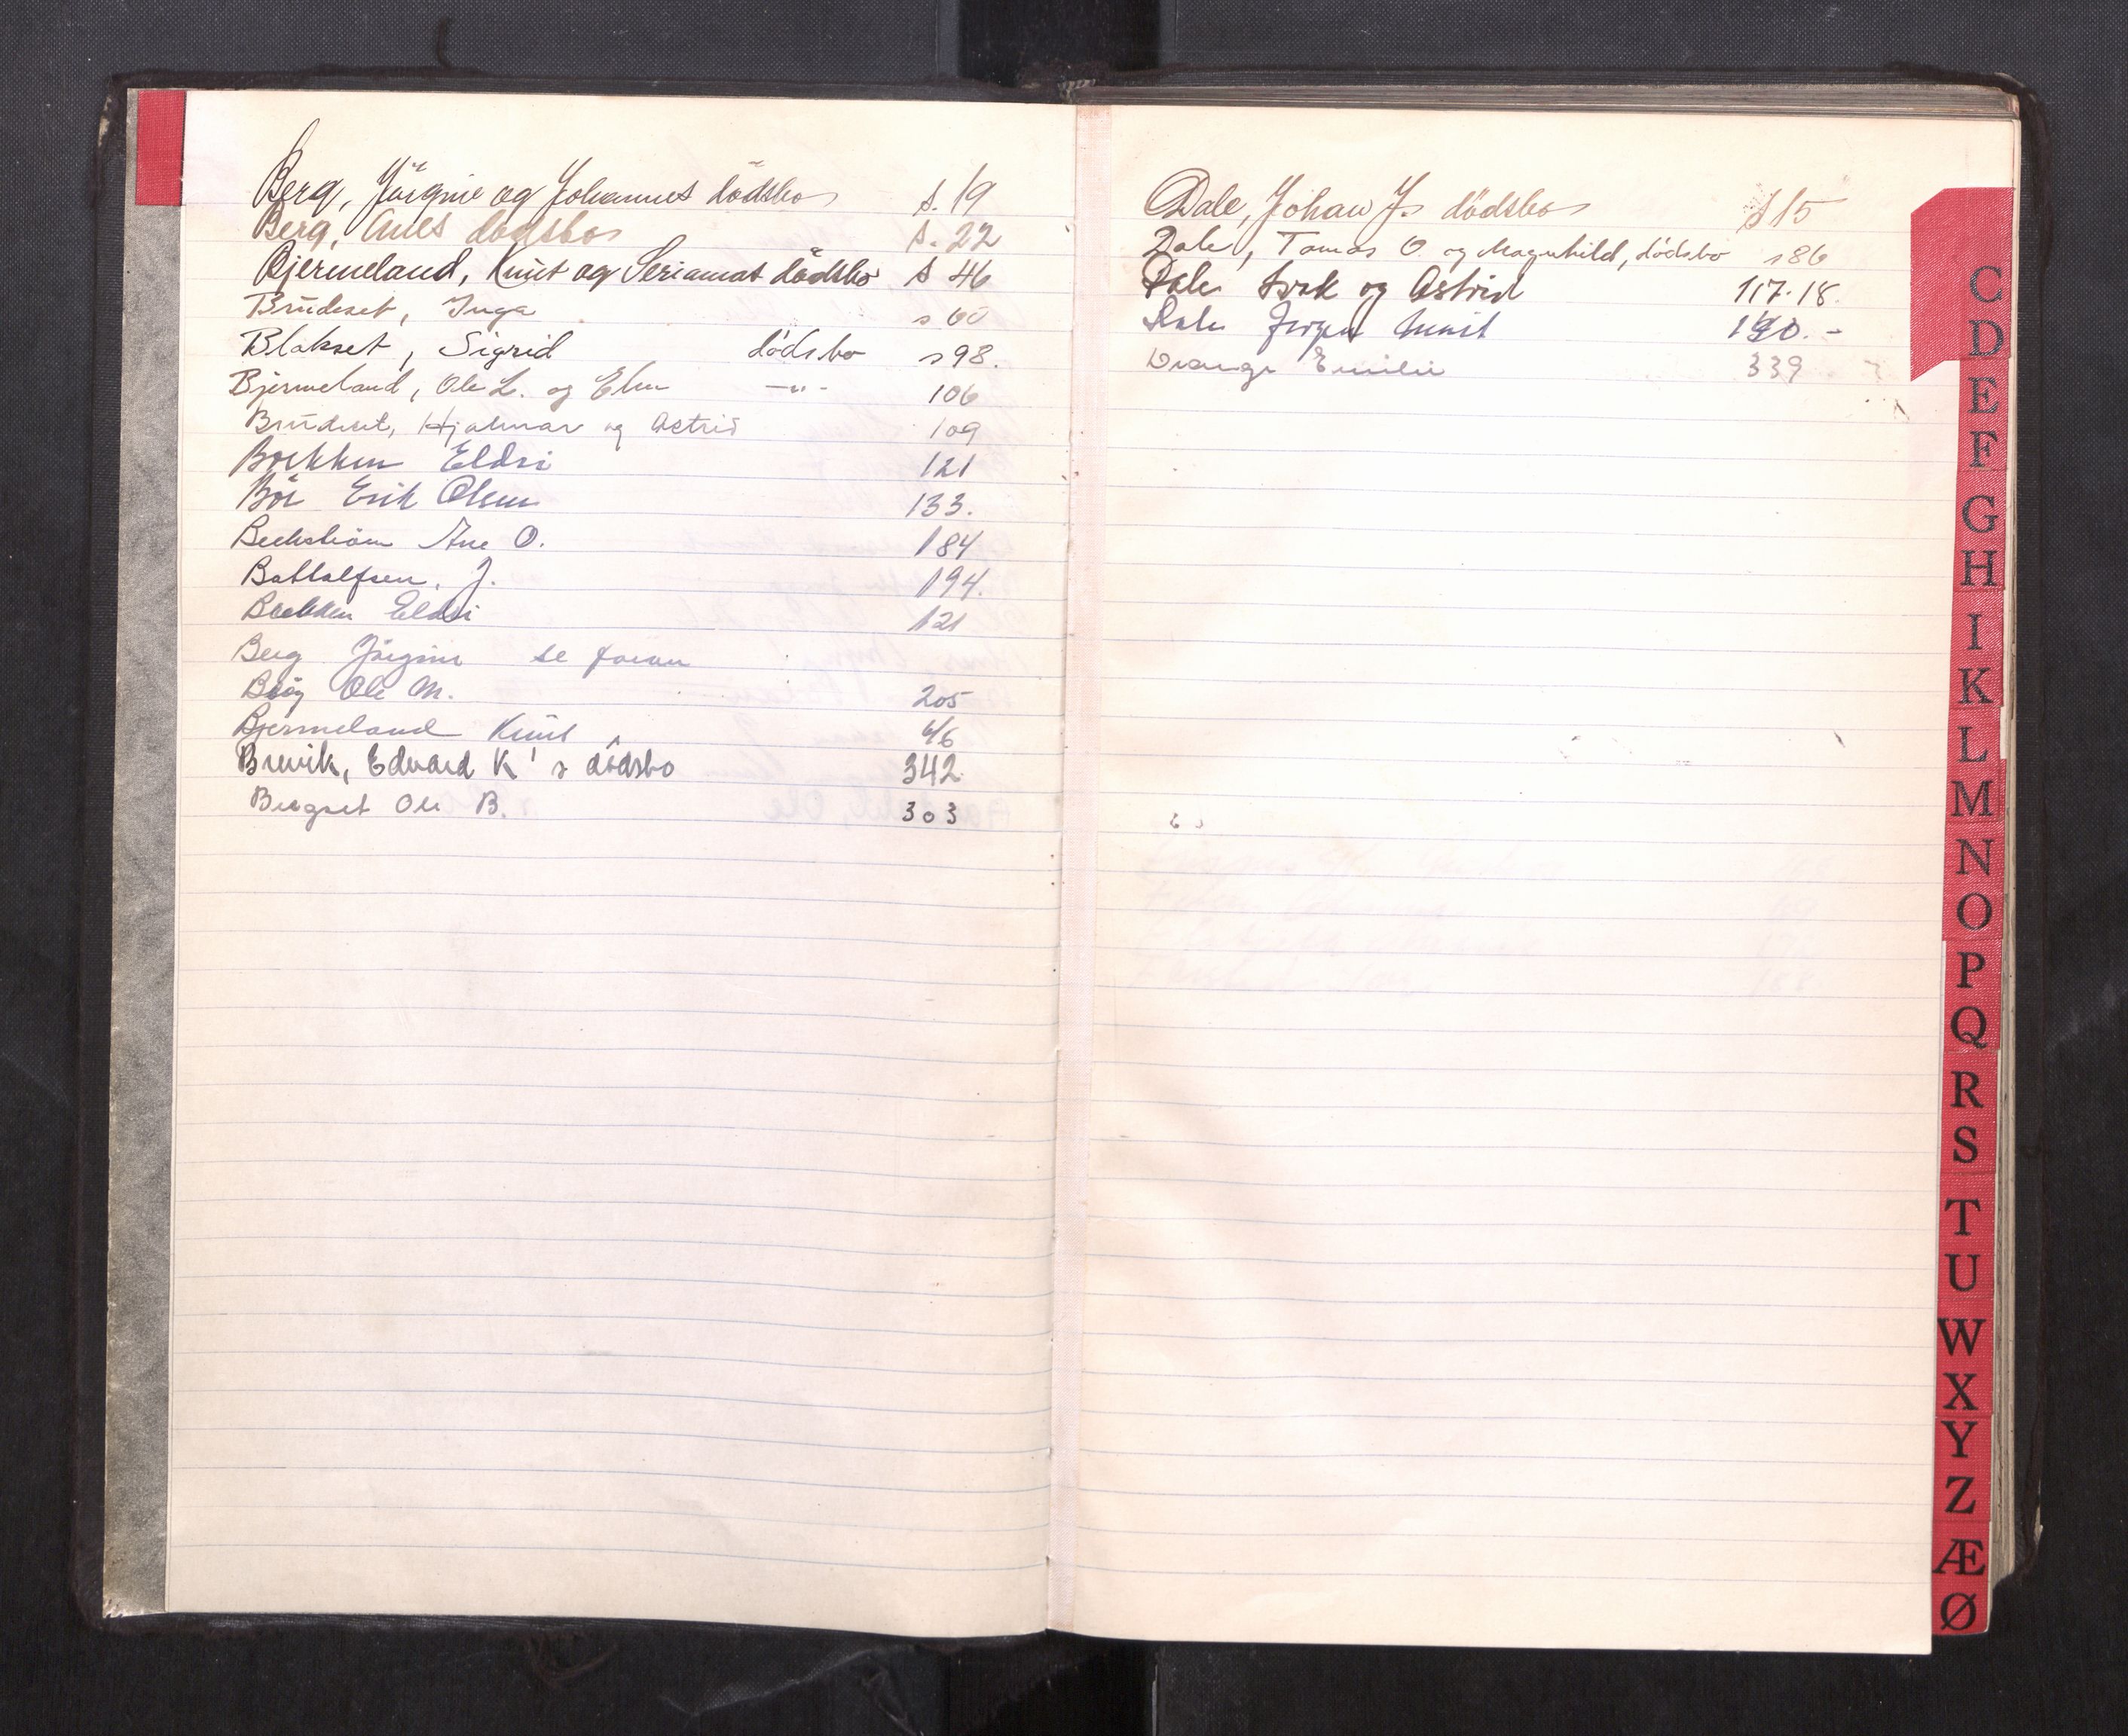 Berg, Jörgine og Johannes dödsbo s. 19
Berg, dödsbo s. 22
Bjermeland, Knut og Serianna dödsbo s 46
Brudeset, Inga s 60
Blakset, Sigrid dödsbo s 98.
Bjermeland, Ole L. og Elen —"- 106
Brudeset, Hjalmar og Astrid 109
Boekken Eldri 121
Böe Erik Olsen 133.
Beckström Ane O. 184
J. 194.
Eldri 121
Berg Jörgine se foran
Ole M. 205
Bjermeland Knut 46
Brevik, Edvard K's dödsbo 342
Bergset Ole B. 303
Dale, Johan J.s dödsbo s 15
Dale, Tomas O. og Magnhild, dödsbo s 86
Dale og Astrid 117-18.
Dale Jörgen Knut
Emilie 339
C
D
E
F
G
H
I
K
L
M
N
O
P
Q
R
S
T
U
W
X
Y
Z
Æ
Ø